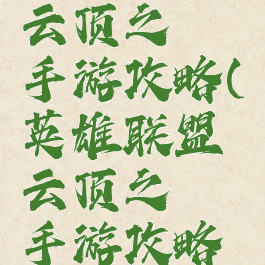 云顶之
手游攻略(
英雄联盟
云顶之
手游攻略